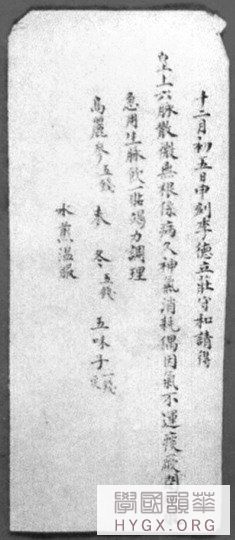 十二月初五日申刻李德立莊守和請得
皇上六脈散微無根係病久神氣消耗偶因氣不運痰厥
急用生脈飲一貼竭力調理
高麗參五錢 麥冬五錢 五味子一錢
水煎溫服
學國韻華
HYGX.ORG